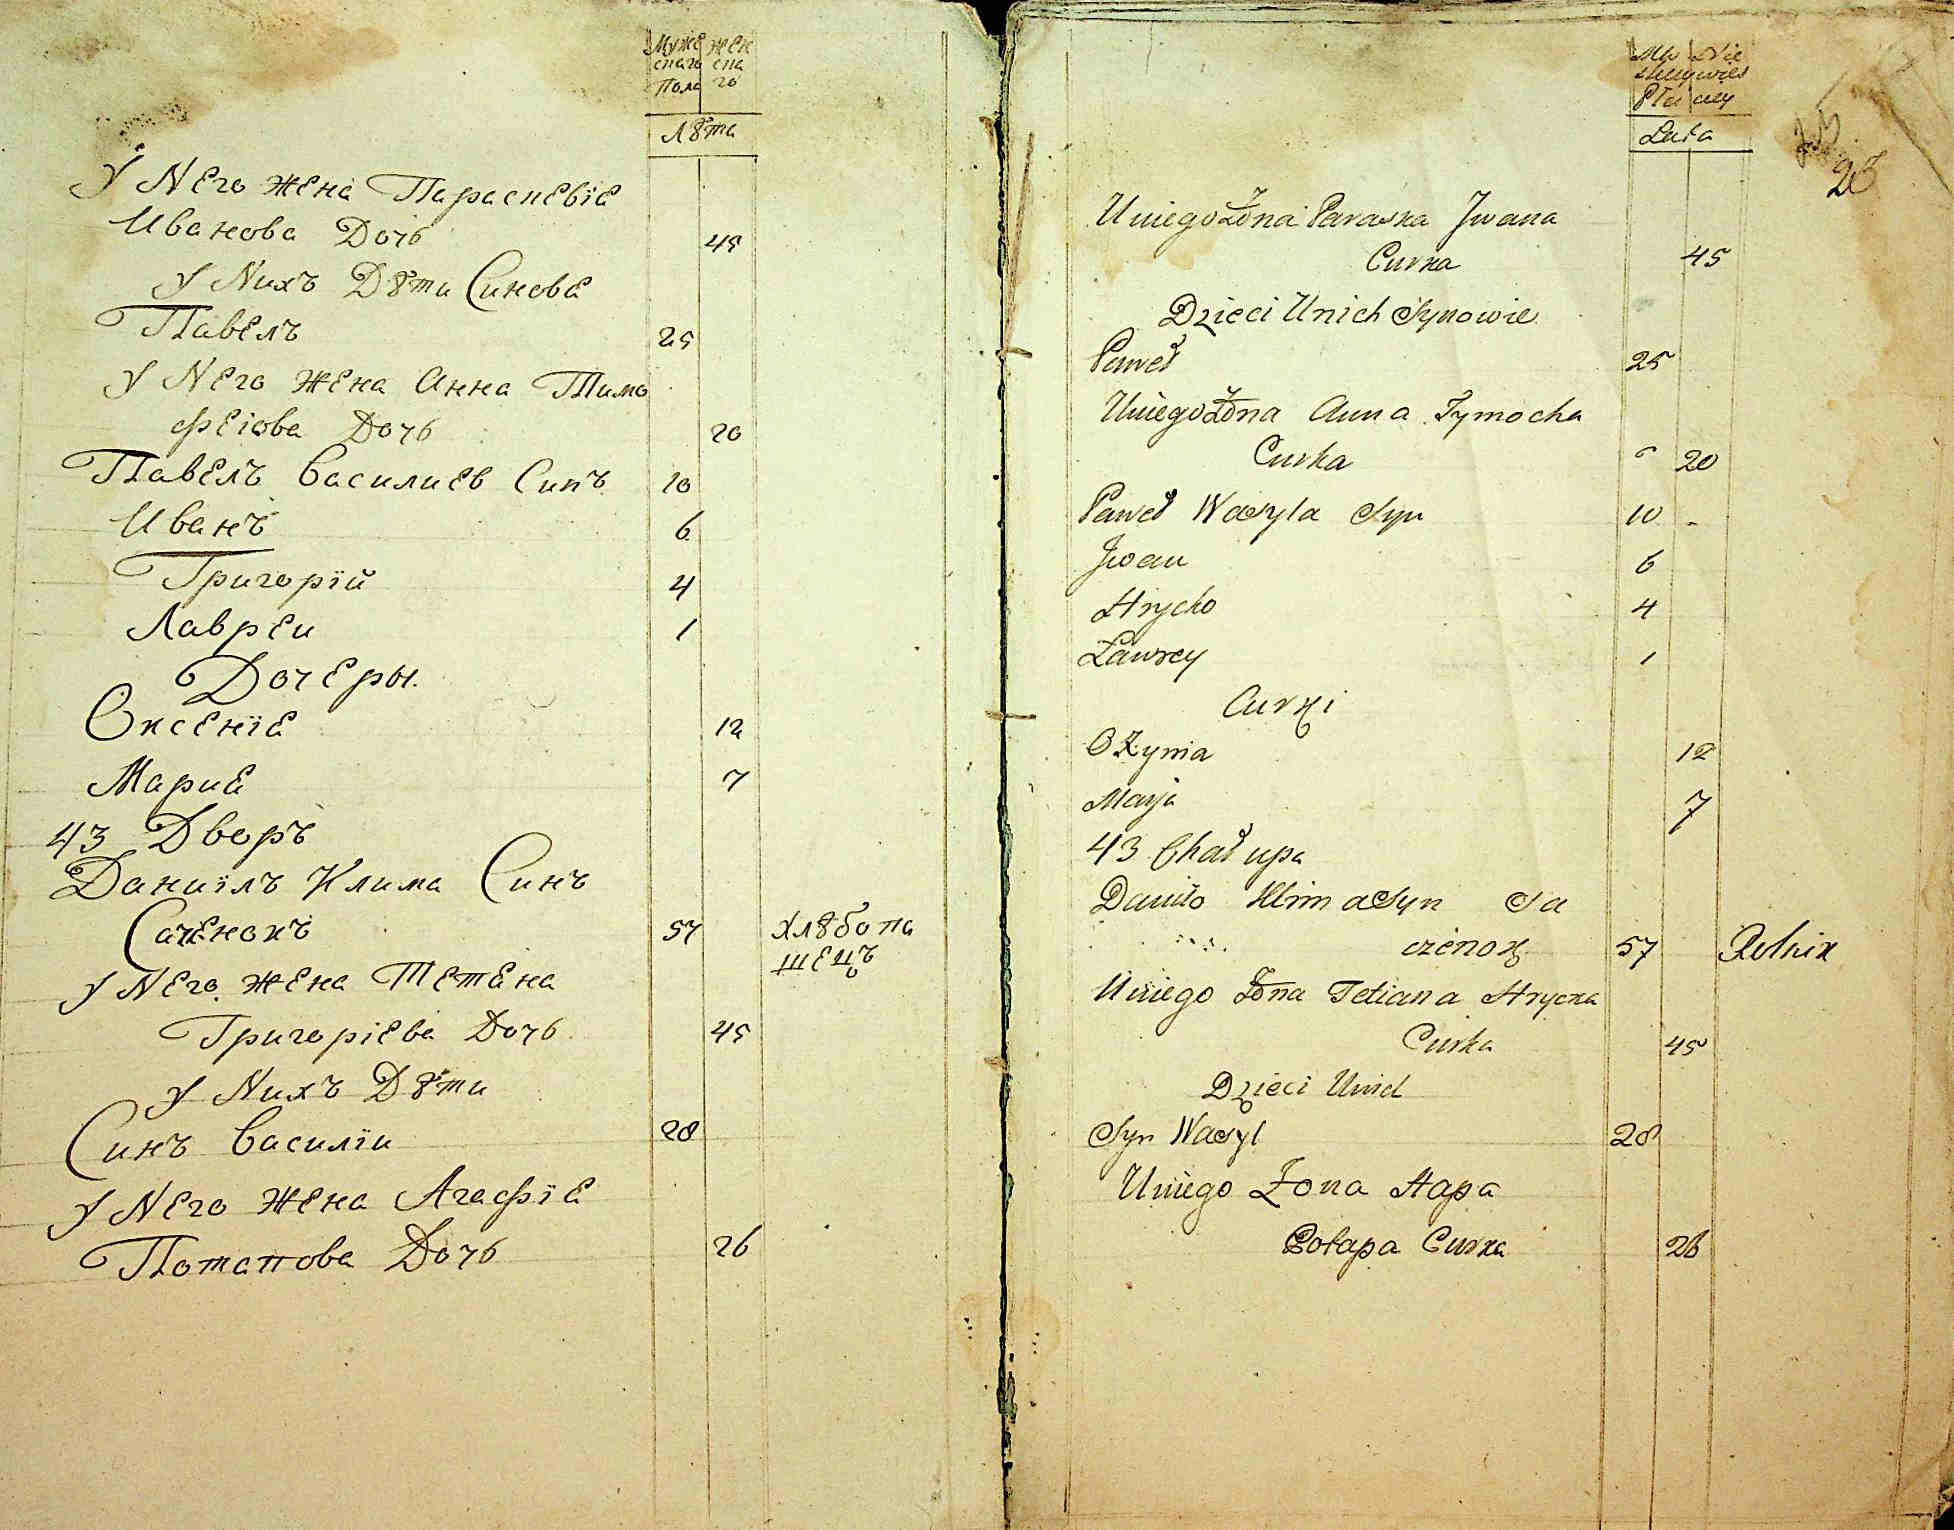 Муже жен
скаго ска
Пола го
Лѣта
У Него жена Параскевїе
Иванова Дочь 45
У Нихъ Дѣти Синове
Павелъ 25
У Него жена Анна Тимо
феіова Дочь 20
Павелъ Василиев Синъ 10
Иванъ 6
Григорїй 4
Лавреи 1
Дочеры.
Оксенїе 12
Марие 7
43 Дворъ
Даниїлъ Клима Синъ
Саченокъ 57 Хлѣбопа
шецъ
У Него жена Тетена
Григоріева Дочь 45
У Нихъ Дѣти
Синъ Василїи 28
У Него жена Агафїе
Потапова Дочь 26
Lata
23
U niego Żona Paraska Jwana
Curka 45
Dzieci Unich Synowie
Paweł 25
Uniego Żona Anna Tymocha
Curka 20
Paweł Wasyla Syn 10
Jwan 6
Hrycko 4
Ławrey 1
Curki
Oxynia 12
Marja 7
43 Chałupa
Daniło Klima Syn Sa
czenok 57 Rolnik
Uniego Żona Tetiana Hrycka
Curka 45
Dzieci Unich
Syn Wasyl 28
Uniego Żona Hapa
Potapa Curka 26